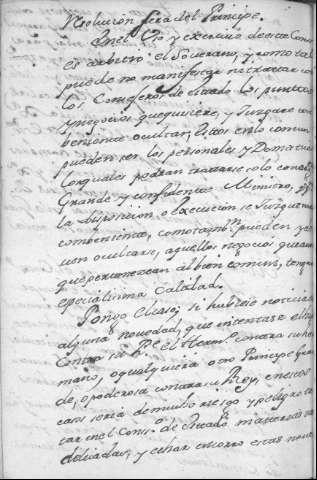 Resolucion sera del Principe.
En el Uso y exercicio de este Cons.º
es arbitro el Soverano, y como tal
puede no manifestar ni tratar con
los Consejeros de Estado los puntos
y negocios que quisiere, y Juzgare con
beniente ocultar, estos en lo comun
pueden ser los personales y Domesticos
los quales podran tratarse solo con el
Grande y confidente Ministro,
la disposicion o execucion se Juzgue mas
combeniente, como tamp.º pueden
ocultarse, aquellos negocios que aun
que pertenezcan al bien comun, tengan
especialissima Calidad.
Pongo el caso, si hubiese noticia de
alguna novedad, que intentase el
contra su P.e el Herm.º contra su her
mano, o qualquiera otro Principe gran
de, o poderosa contra su Rey, en este
caso seria de mucho riesgo y peligro tra
tar en el Cons.º de Estado materias tan
delicadas, y echar en corro estas nove